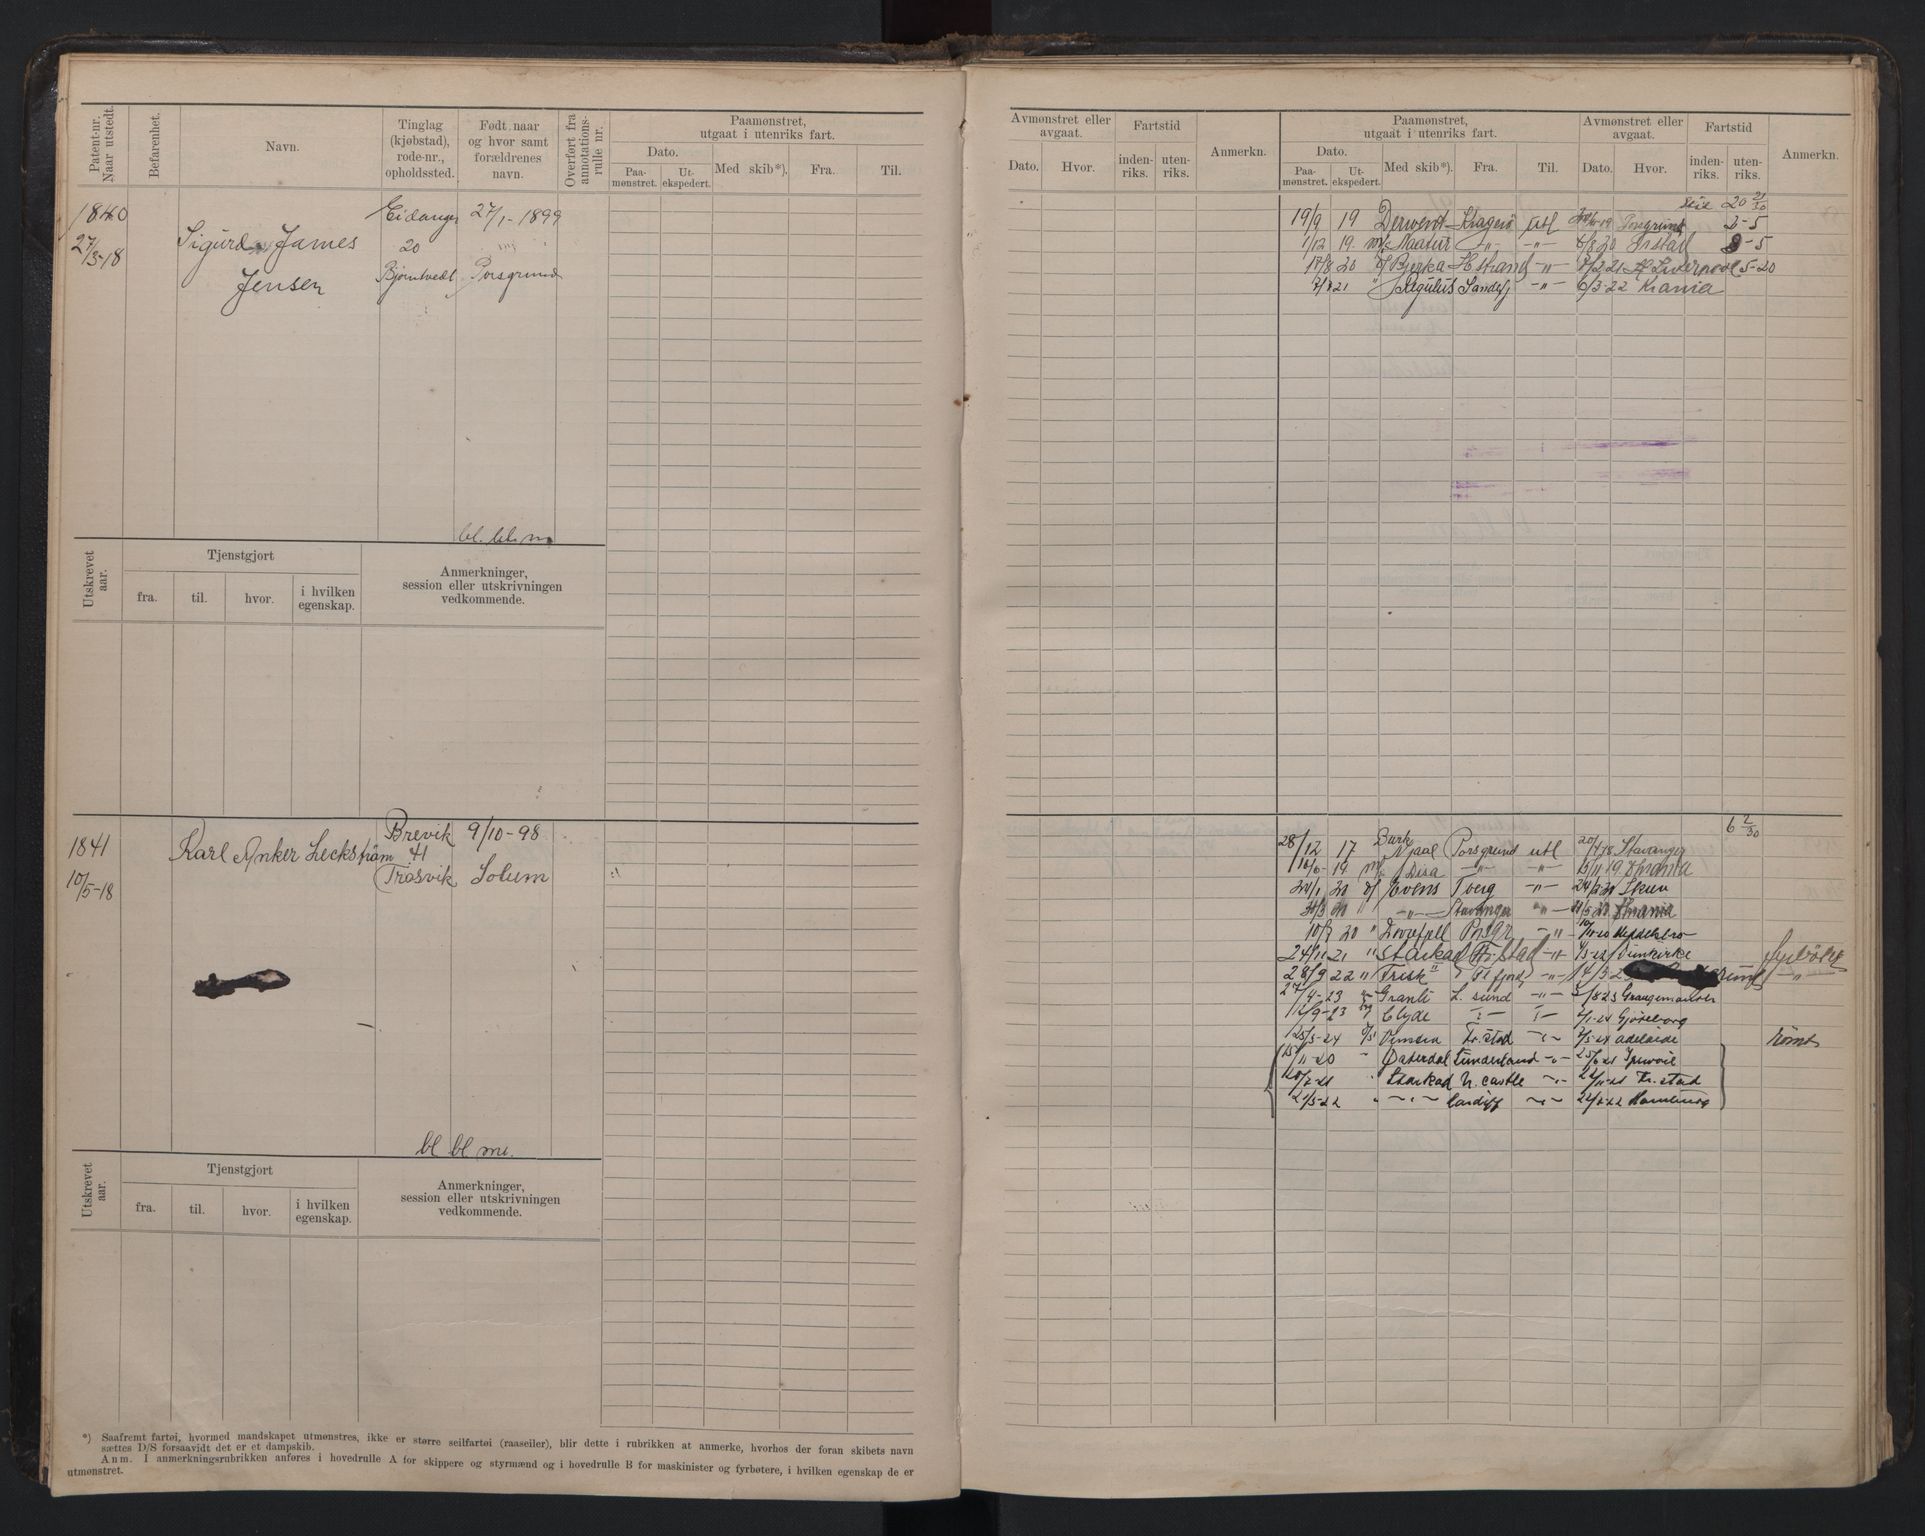 Patent-nr. Naar utstedt.
Befarenhet.
Navn.
Tinglag (kjøbstad), rode-nr., opholdssted.
Født naar og hvor samt forældrenes navn.
Overført fra annotations-rulle nr.
Paamønstret, utgaat i utenriks fart.
Dato.
Paa-mønstret.
Ut-ekspedert.
Med skib*).
Fra.
Til.
1840
27/3-18
Sigurd James
Jensen
Eidanger
20
Bjørntvedt
27/1-1899
Porsgrund
bl. bl. m
Utskrevet aar.
Tjenstgjort
fra.
til.
hvor.
i hvilken egenskap.
Anmerkninger, session eller utskrivningen vedkommende.
1841
10/5-18
Karl Anker Leckstrøm
Brevik
41
Trosvik
9/10-98
Solum
bl bl m.
Utskrevet aar.
Tjenstgjort
fra.
til.
hvor.
i hvilken egenskap.
Anmerkninger, session eller utskrivningen vedkommende.
*) Saafremt fartøi, hvormed mandskapet utmønstres, ikke er større seilfartøi (raaseiler), blir dette i rubrikken at anmerke, hvorhos der foran skibets navn
sættes D/S forsaavidt det er et dampskib.
Anm. I anmerkningsrubrikken anføres i hovedrulle A for skippere og styrmænd og i hovedrulle B for maskinister og fyrbøtere, i hvilken egenskap de er
utmønstret.
Avmønstret eller avgaat.
Dato.
Hvor.
Fartstid
inden-riks.
uten-riks.
Anmerkn.
Paamønstret, utgaat i utenriks fart.
Dato.
Paa-mønstret.
Ut-ekspedert.
Med skib*).
Fra.
Til.
Avmønstret eller avgaat.
Dato.
Hvor.
Fartstid
inden-riks.
uten-riks.
Anmerkn.
20 21/30
19/9 19 Derwent Kragerø utl Porsgrund 2-5
1/12 19 m/s Naatur -"- -"- 6/8 20 -5
17/8 20 Bjerka Hstrand -"- Liverpool 5-20
21 " Regulus Sandefj -"- 6/3-22 Krania
6 2/30
28/12 17 Bark Njaal Porsgrund utl 20/ 18 Stavanger
19 m/s Disa -"- -"- 19 Krania
20 Evens Tverg -"- 24/ 20 Skien
20 " -"- Stavanger -"- Krania
20 " Dovrefjell Porsgr -"-
24/11 21 " Starkad Fr.stad -"- Dunkirke Fyrbøter
28/9 22 " Frisk II -"- 14/3 2 "
27/4-23 Granli L. sund -"- /8 23 Grangemouth
12/9-23 Clyde -"- -"- Gjøteborg
25/5-24 Fr.stad -"- Adelaide Rømt
/11-20 " Østerdal Sunderland -"- 25/6-21
/7-21 " Starkad N. castle -"- 22/11-21 Fr. stad
2/5-22 " -"- Cardiff -"- 22/ 22 Hamburg